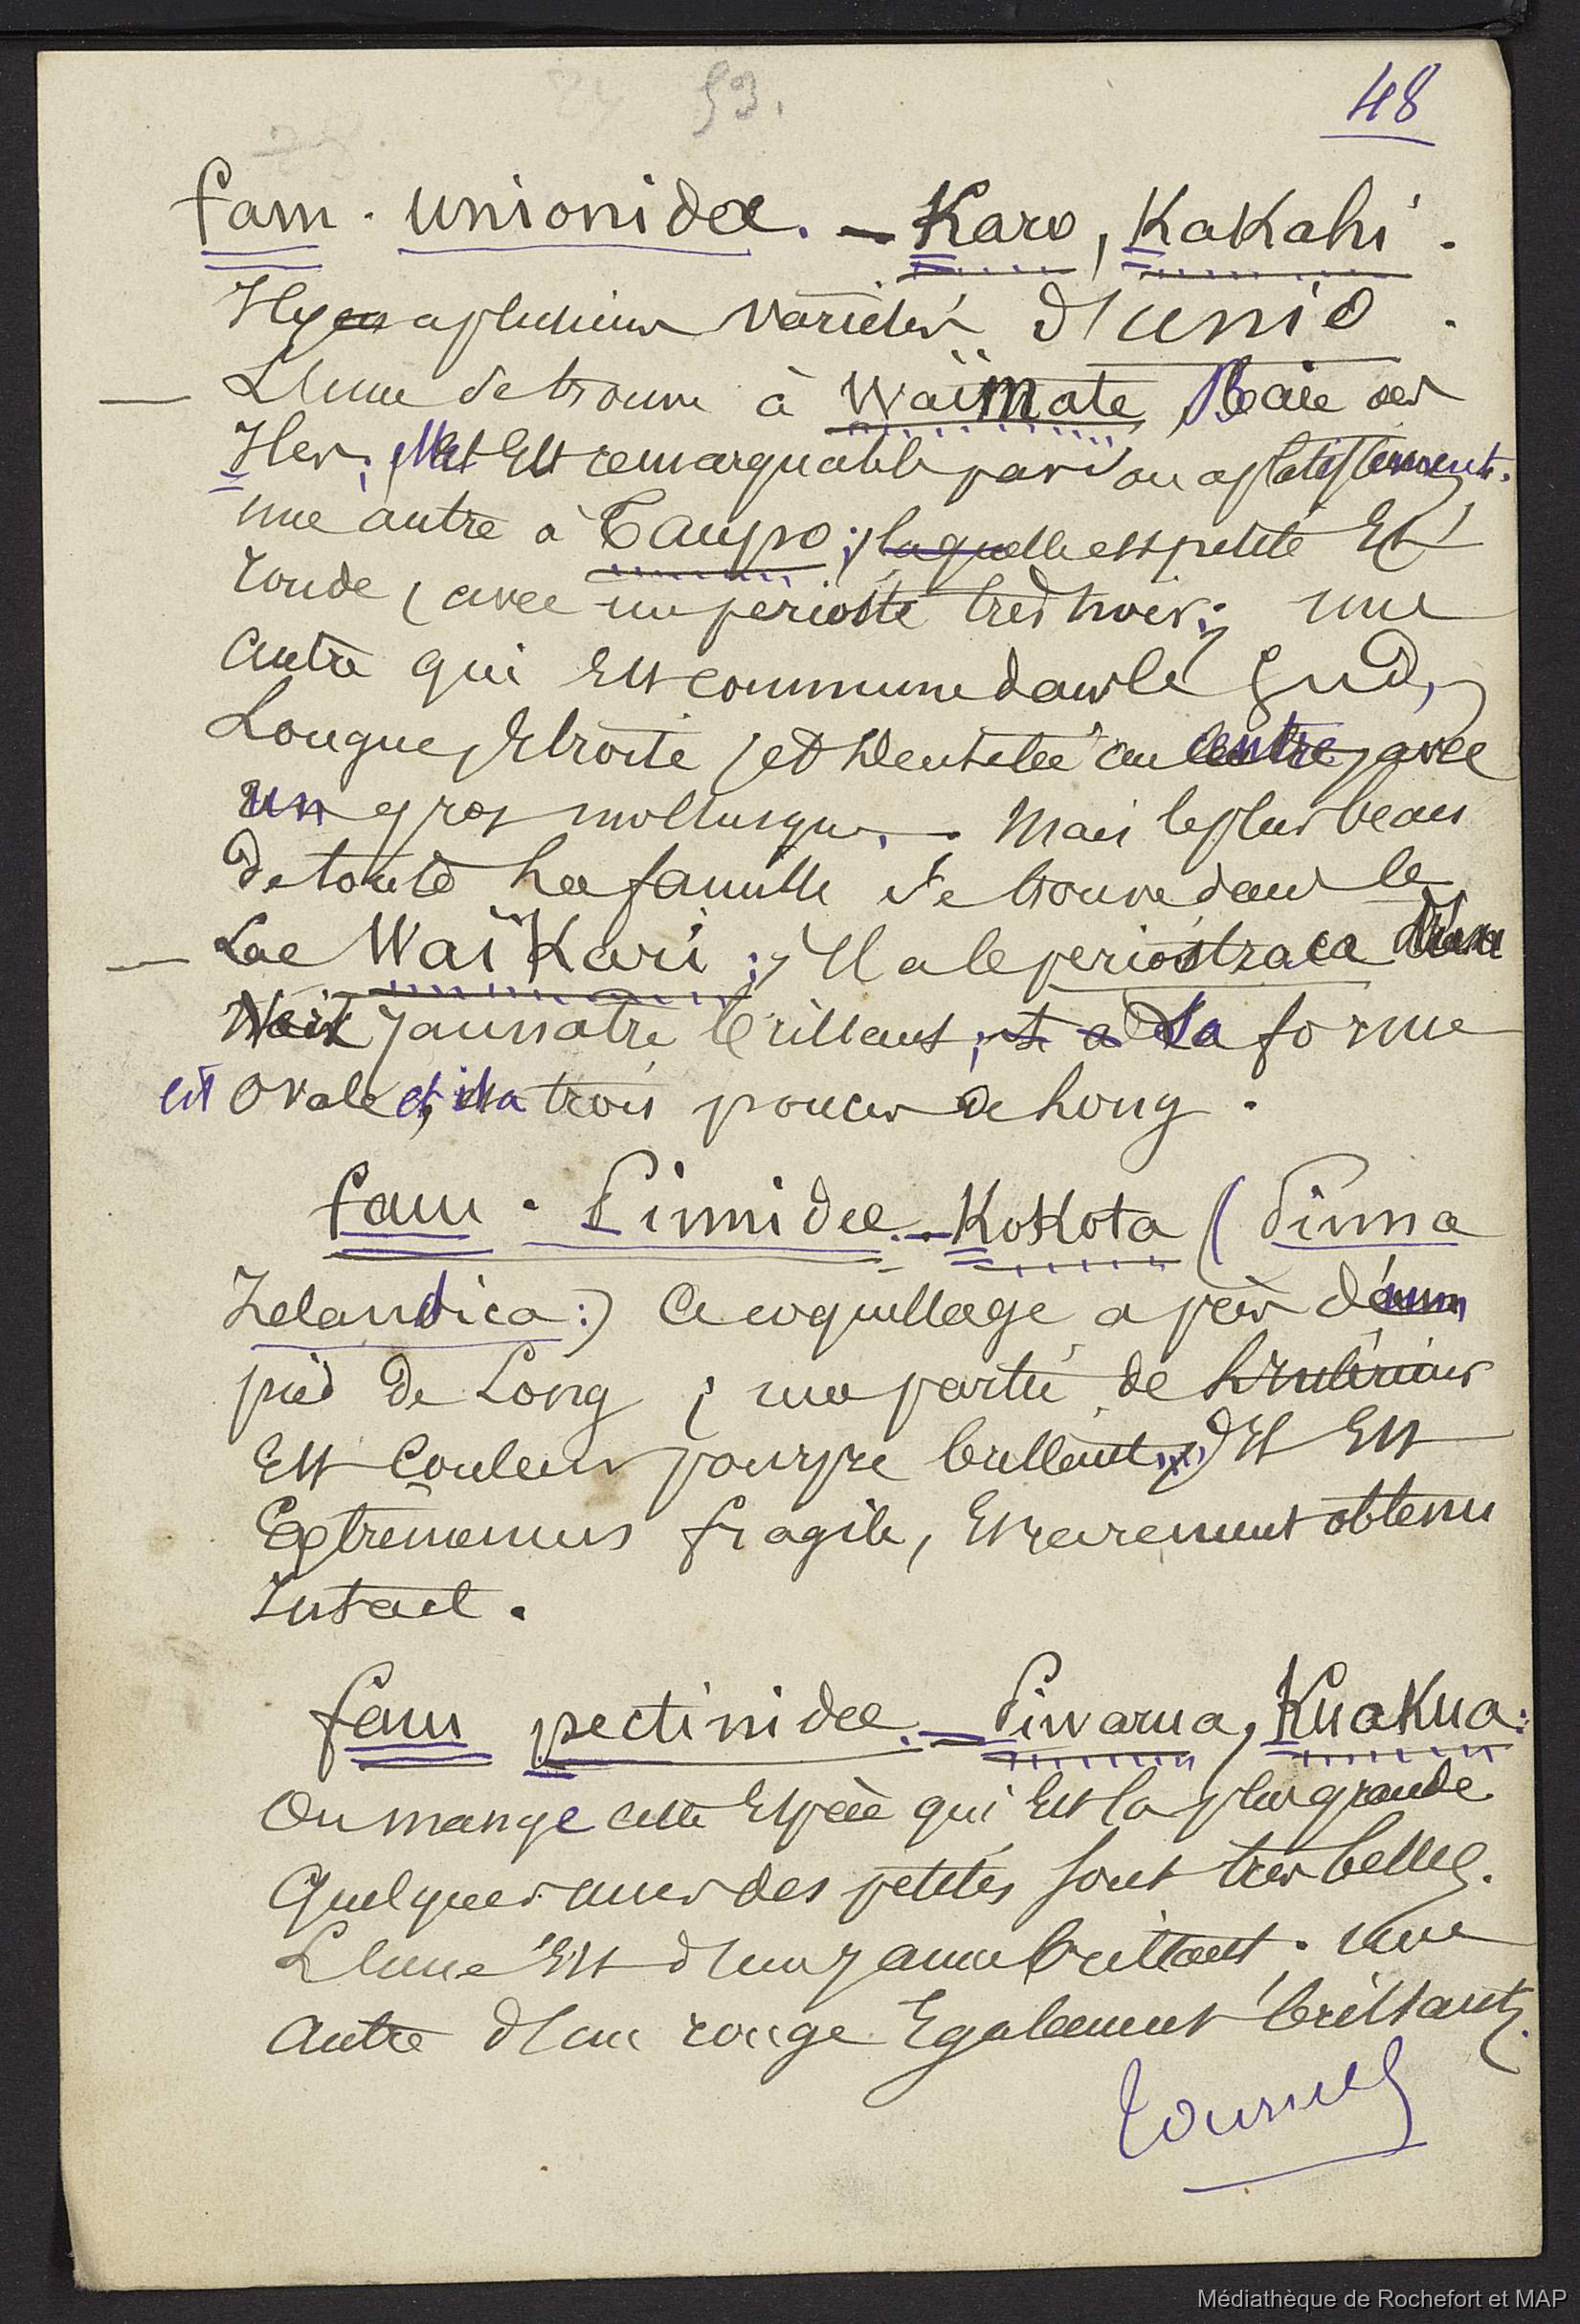 53.
48
fam. unionidœ. — Karo, KaKahi.
Il y en a plusieurs variétés d'unio.
— L'une se trouve à Waïmate, Baie des
Iles; Elle Est remarquable par son aplatissement.
une autre à Taupo; laquelle est petite Et
ronde, avec un périoste très noir; une
autre qui Est commune dans le Sud,
Longue, Etroite, et dentelée au centre, avec
un gros mollusque. Mais le plus beau
de toute La famille se trouve dans le
— Lac WaïKari; Il a le periostraca d'un
Noir jaunatre brillant; sa forme
est ovale, et il a trois pouces de Long.
fam. Pinnidœ. — KoKota (Pinna
Zelandica:) Ce coquillage a près d'un
pied de Long; une partie de L'intérieur
Est Couleur pourpre brillant; Il Est
Extrêmemens fragile, Et rarement obtenu
Intact.
fam pectinidœ. — Piwarua, KuaKua:
On mange cette Espèce qui Est la plus grande.
Quelques unes des petites sont très belles.
L'une Est d'un jaune brillant. une
autre d'un rouge Egalement brillant.
Tournez
Médiathèque de Rochefort et MAP